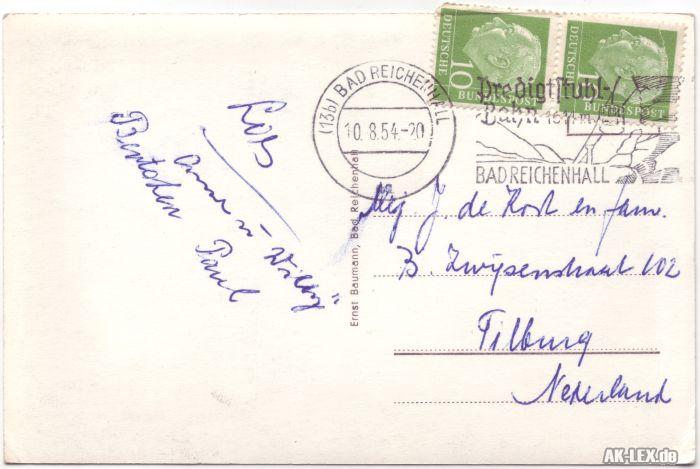 10 DEUTSCHE BUNDESPOST
10 DEUTSCHE BUNDESPOST
(13b) BAD REICHENHALL
10.8.54.-20
Predigtstuhl-
Bahn
BAD REICHENHALL
Anna u Willy
Paul
Ernst Baumann, Bad Reichenhall
J. de Kort en fam.
B. Zwijsenstraat 102
Tilburg
Nederland
AK-LEX.de